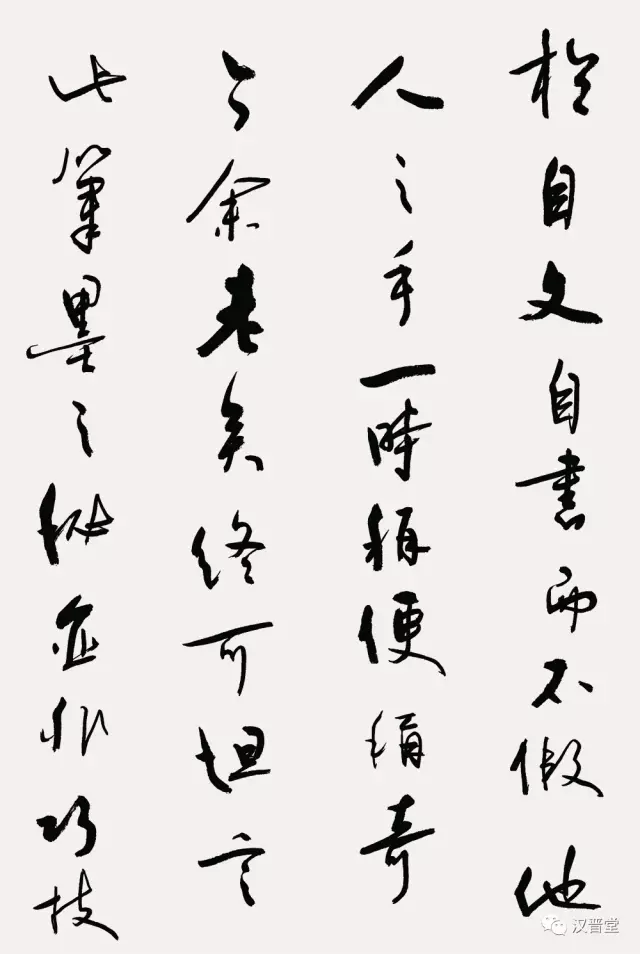 於自文自書而不假他
人之手一時稱便稱奇
今余老矣終可坦言
此筆墨之秘並非巧技
汉晋堂